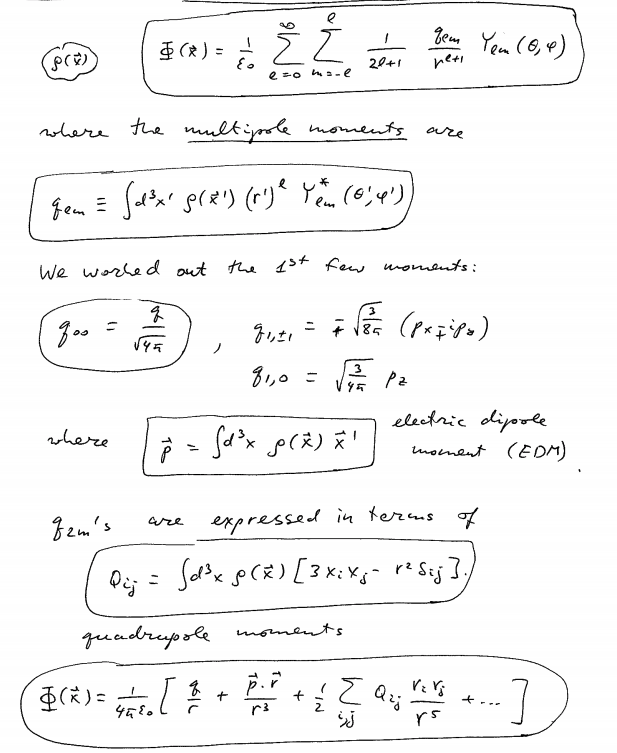 ρ(x⃗) Φ(x⃗) = 1/ε₀ ∑_{ℓ=0}^{∞} ∑_{m=-ℓ}^{ℓ} 1/(2ℓ+1) q_{ℓm}/r^{ℓ+1} Y_{ℓm}(θ,φ)
where the multipole moments are
q_{ℓm} ≡ ∫d³x' ρ(x⃗') (r')^ℓ Y*_{ℓm}(θ',φ')
We worked out the 1st few moments:
q₀₀ = q/√4π , q_{1,±1} = ∓ √(3/8π) (p_x ∓ i p_y)
q_{1,0} = √(3/4π) p_z
where p⃗ = ∫d³x ρ(x⃗) x⃗' electric dipole
moment (EDM).
q_{2m}'s are expressed in terms of
Q_{ij} = ∫d³x ρ(x⃗) [3 x_i x_j - r² δ_{ij}].
quadrupole moments
Φ(x⃗) = 1/(4πε₀) [ q/r + p⃗·r⃗/r³ + 1/2 ∑_{i,j} Q_{ij} r_i r_j/r⁵ + ... ]